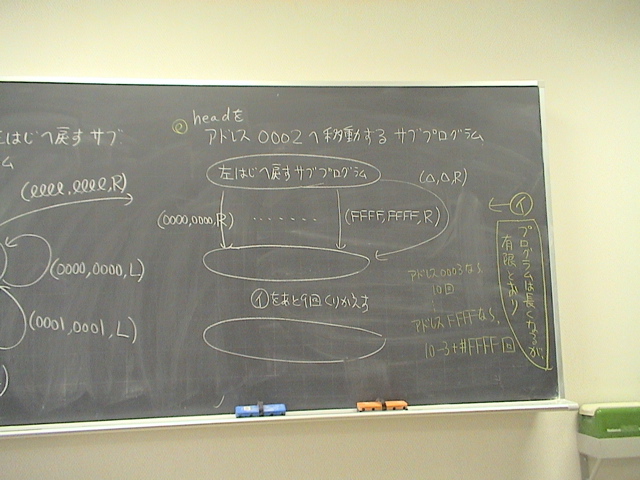 左はじへ戻すサブ
ム
(llll,llll,R)
(0000,0000,L)
(0001,0001,L)
② headを
アドレス0002へ移動するサブプログラム
左はじへ戻すサブプログラム
(△,△,R)
(0000,0000,R)
.......
(FFFF,FFFF,R)
①をあと9回くりかえす
アドレス0003なら
10回
アドレスFFFFなら、
10-3+#FFFF回
← ①
プログラムは長くなるが、
有限